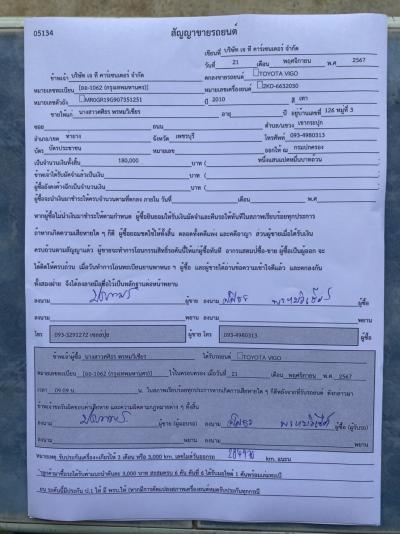 05134
สัญญาขายรถยนต์
เขียนที่ บริษัท เจ ที คาร์เซนเตอร์ จำกัด
วันที่ 21 เดือน พฤศจิกายน พ.ศ 2567
ข้าพเจ้า บริษัท เจ ที คาร์เซนเตอร์ จำกัด ตกลงขายรถยนต์ TOYOTA VIGO
หมายเลขทะเบียน [ออ-1062 (กรุงเทพมหานคร)] หมายเลขเครื่องยนต์ 2KD-6632030
หมายเลขตัวถัง MR0GR19G907351251 ปี 2010 สี เทา
ขายให้แก่ นางสาวศศิธร พรหมวิเชียร อายุ ปี อยู่บ้านเลขที่ 126 หมู่ที่ 3
ซอย ถนน ตำบล/แขวง เขากระปุก
อำเภอ/เขต ท่ายาง จังหวัด เพชรบุรี โทรศัพท์ 093-4980313
บัตร บัตรประชาชน หมายเลข ออกให้ ณ กรมปกครอง
เป็นจำนวนเงินทั้งสิ้น 180,000 บาท ( หนึ่งแสนแปดหมื่นบาทถ้วน
ข้าพเจ้าได้รับมัดจำแล้วเป็นเงิน บาท (
ผู้ซื้อยังคงค้างอีกเป็นจำนวนเงิน บาท (
ผู้ซื้อจะนำเงินมาชำระให้ครบจำนวนตามที่ตกลง ภายใน วันที่ เดือน พ.ศ
หากผู้ซื้อไม่นำเงินมาชำระตามกำหนด ผู้ซื้อยินยอมให้ริบเงินมัดจำและคืนรถให้ทันทีในสภาพเรียบร้อยทุกประการ
ถ้าหากเกิดความเสียหายใด ๆ ก็ดี ผู้ซื้อยอมชดใช้ให้ทั้งสิ้น ตลอดทั้งคดีแพ่ง และคดีอาญา ส่วนผู้ขายเมื่อได้รับเงิน
ครบถ้วนตามสัญญาแล้ว ผู้ขายจะทำการโอนกรรมสิทธิ์รถคันนี้ให้แก่ผู้ซื้อทันที
ทั้งสองฝ่าย จึงได้ลงลายมือชื่อไว้เป็นหลักฐานต่อหน้าพยาน
ลงนาม ผู้ขาย ลงนาม ศศิธร พรหมวิเชียร ผู้ซื้อ
ลงนาม พยาน ลงนาม พยาน
โทร 093-3291272 ผู้ขาย โทร 093-4980313 ผู้ซื้อ
ข้าพเจ้าผู้ซื้อ นางสาวศศิธร พรหมวิเชียร ได้รับรถยนต์ TOYOTA VIGO
หมายเลขทะเบียน [ออ-1062 (กรุงเทพมหานคร)] ไว้ในครอบครอง เมื่อวันที่ 21 เดือน พฤศจิกายน พ.ศ 2567
เวลา 09.09 น.
ลงนาม ผู้ขาย (ผู้มอบรถ) ลงนาม ศศิธร พรหมวิเชียร ผู้ซื้อ (ผู้รับรถ)
ลงนาม พยาน ลงนาม พยาน
หมายเหตุ รับประกันเครื่อง+เกียร์ให้ 2 เดือน หรือ 3,000 km. เลขไมล์วันออกรถ km.